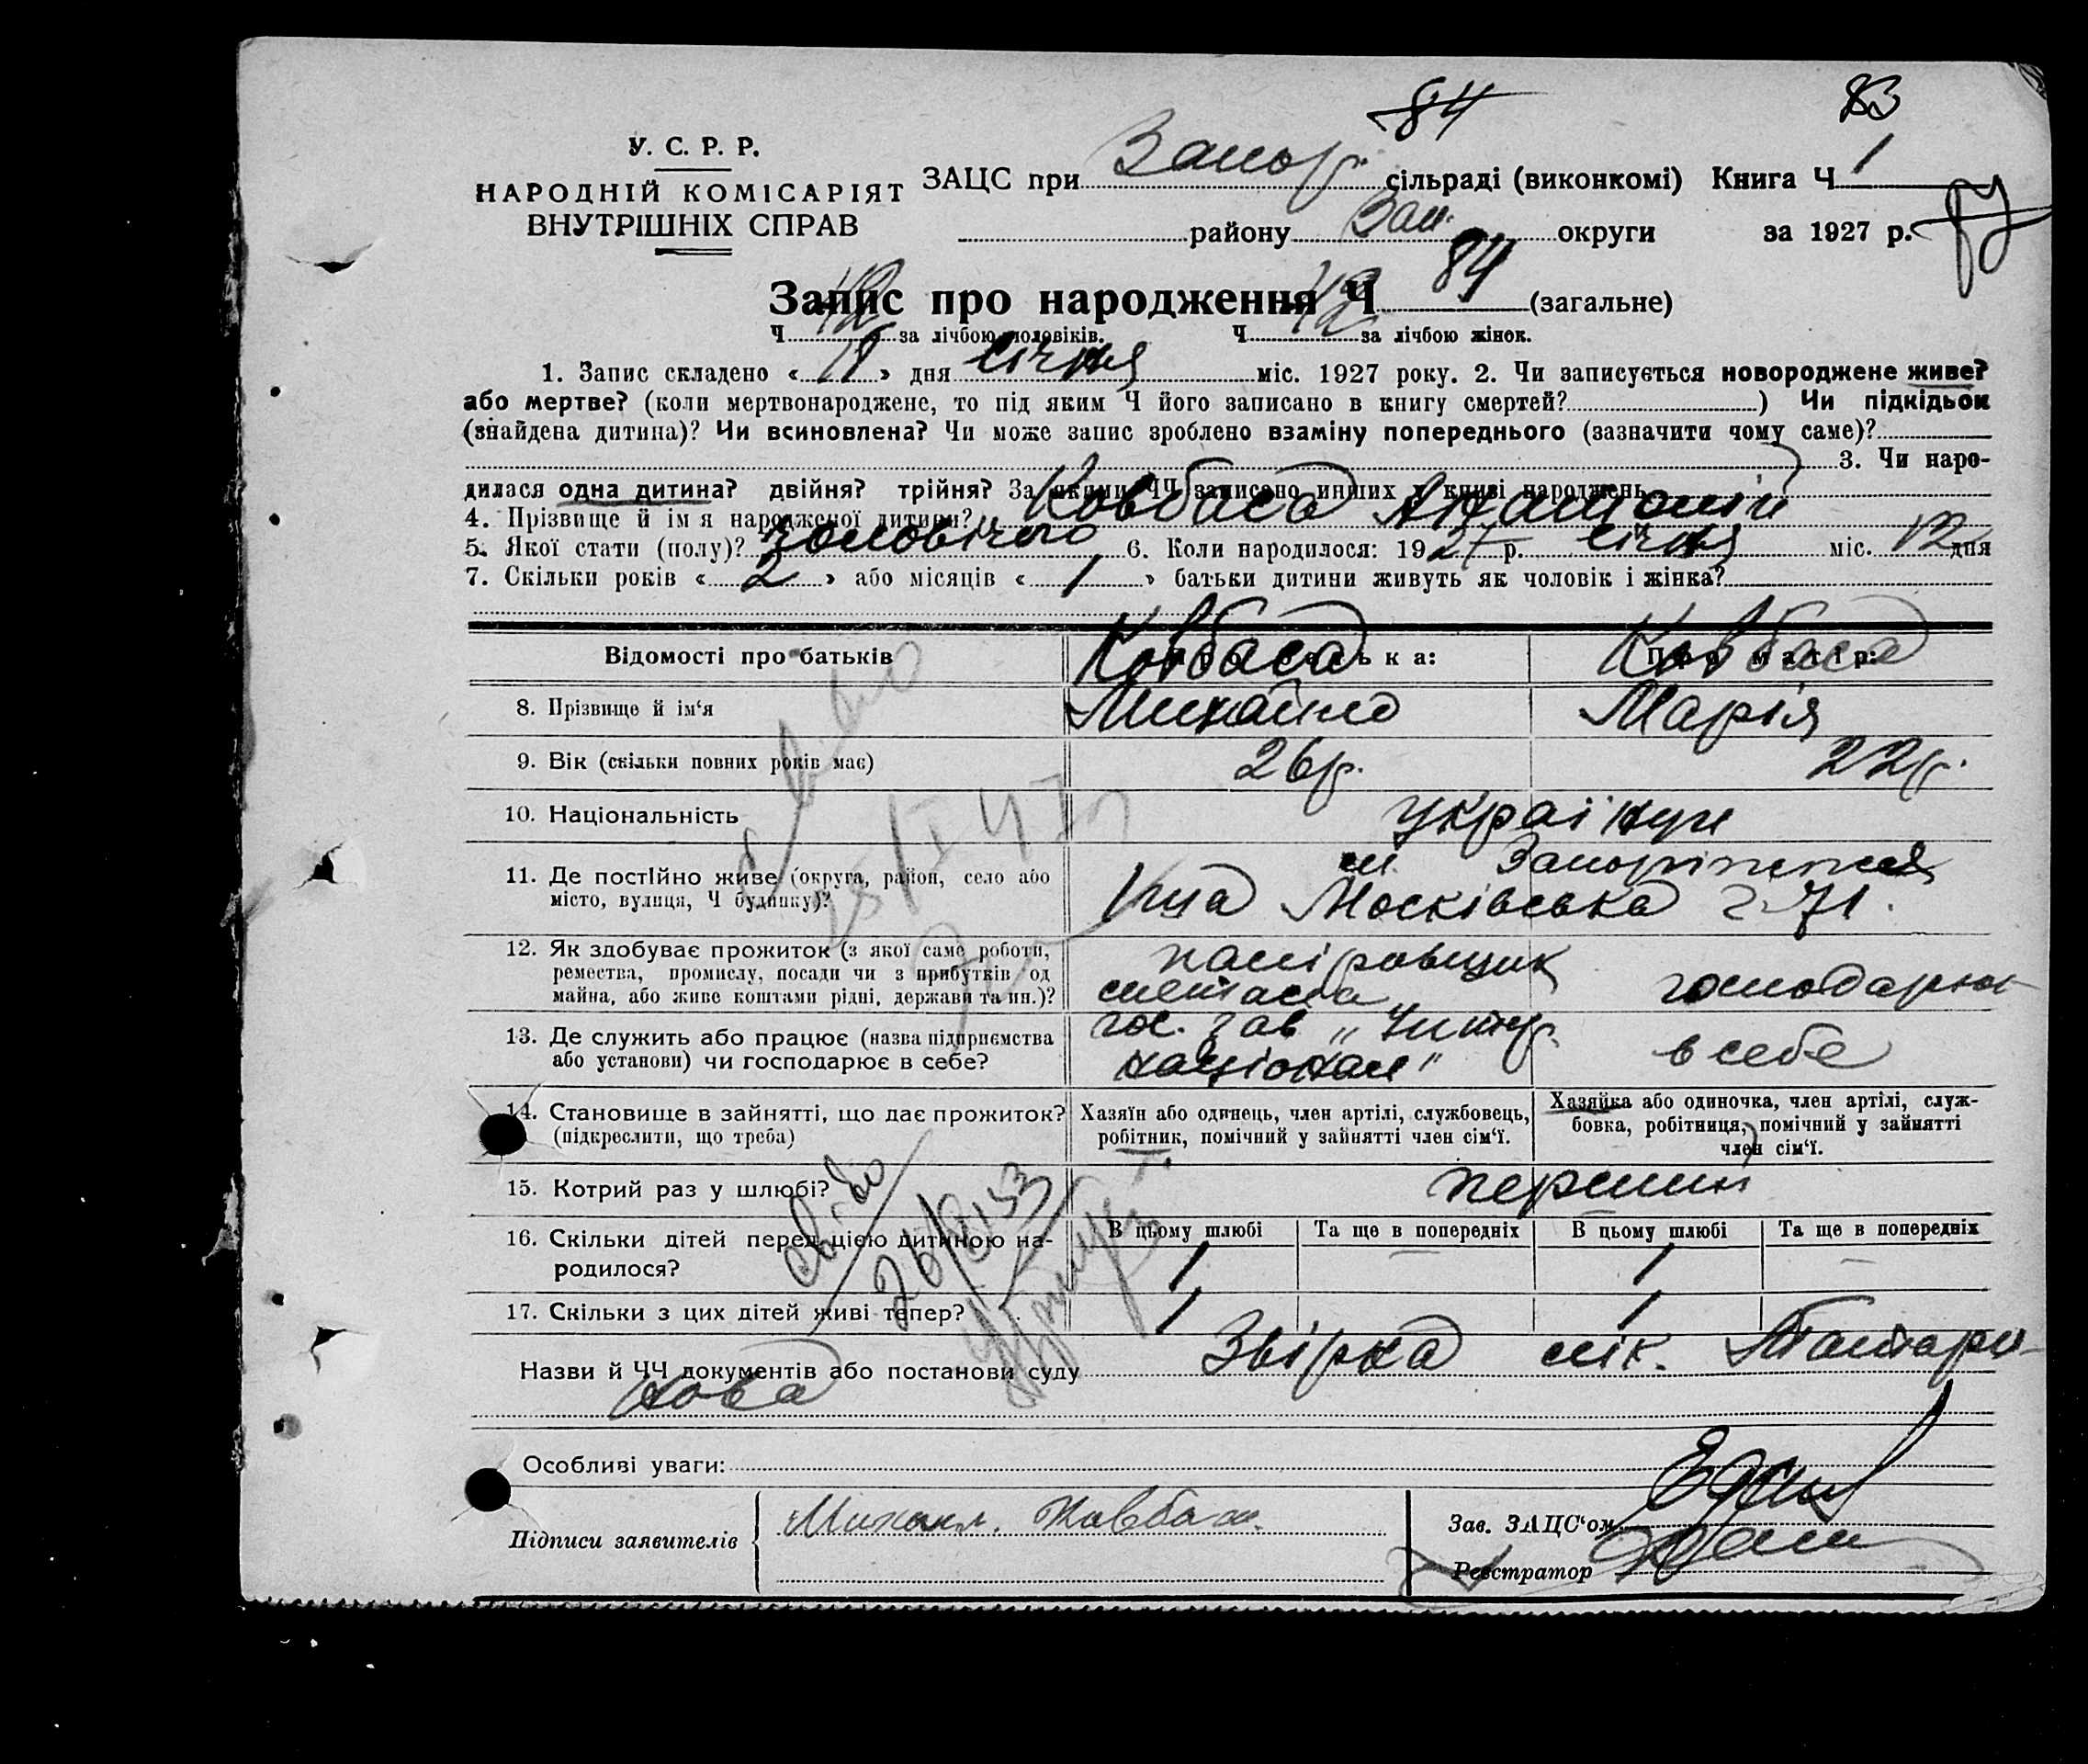 84 83
У. С. Р. Р.
НАРОДНІЙ КОМІСАРІЯТ
ВНУТРІШНІХ СПРАВ
ЗАЦС при Запор. сільраді (виконкомі) Книга Ч 1
району Зап. округи за 1927 р.
Запис про народження Ч 84 (загальне)
Ч 42 за лічбою чоловіків. Ч 42 за лічбою жінок.
1. Запис складено « » дня січня міс. 1927 року. 2. Чи записується новороджене живе?
або мертве? (коли мертвонароджене, то під яким Ч його записано в книгу смертей? ) Чи підкідьок
(знайдена дитина)? Чи всиновлена? Чи може запис зроблено взаміну попереднього (зазначити чому саме)?
3. Чи наро-
дилася одна дитина? двійня? трійня? За якими ЧЧ записано инших у книзі народжень
4. Прізвище й ім'я народженої дитини? Ковбаса Анатолій
5. Якої стати (полу)? чоловічого 6. Коли народилося: 1927 р. січня міс. 12 дня
7. Скільки років « 2 » або місяців « 1 » батьки дитини живуть як чоловік і жінка?
Відомості про батьків Про батька: Про матір:
Ковбаса Ковбаса
8. Прізвище й ім‘я Михайло Марія
9. Вік (скільки повних років має) 26 р. 22 р.
10. Національність українці
11. Де постійно живе (округа, район, село або
місто, вулиця, Ч будинку)?
м. Запоріжжя
Московська 71.
12. Як здобуває прожиток (з якої саме роботи,
ремества, промислу, посади чи з прибутків од
майна, або живе коштами рідні, держави та ин.)?
господарює
13. Де служить або працює (назва підприємства
або установи) чи господарює в себе?
гос. зав „Интер
національ"
в себе
14. Становище в зайнятті, що дає прожиток?
(підкреслити, що треба)
Хазяїн або одинець, член артілі, службовець,
робітник, помічний у зайнятті член сім‘ї.
Хазяйка або одиночка, член артілі, служ-
бовка, робітниця, помічний у зайнятті
член сім‘ї.
15. Котрий раз у шлюбі? перший
16. Скільки дітей перед цією дитиною на-
родилося?
В цьому шлюбі Та ще в попередніх В цьому шлюбі Та ще в попередніх
1 — 1 —
17. Скільки з цих дітей живі тепер? 1 1
Назви й ЧЧ документів або постанови суду Звірка лік.
Особливі уваги:
Підписи заявителів Михаил. Ковбаса
Зав. ЗАЦС‘ом
Реєстратор